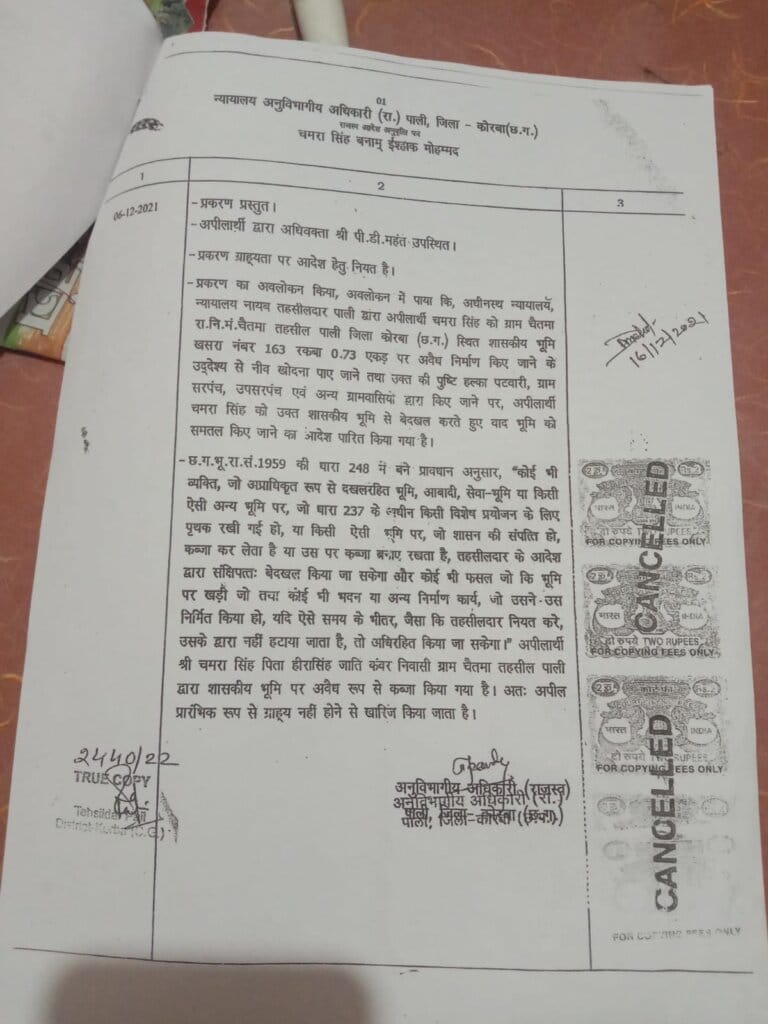 01
न्यायालय अनुविभागीय अधिकारी (रा.) पाली, जिला - कोरबा(छ.ग.)
राजस्व आदेश अनुवृत्ति पत्र
चमरा सिंह बनाम् ईश्हाक मोहम्मद
1
2
3
06-12-2021
- प्रकरण प्रस्तुत।
- अपीलार्थी द्वारा अधिवक्ता श्री पी.डी.महंत उपस्थित।
- प्रकरण ग्राह्यता पर आदेश हेतु नियत है।
- प्रकरण का अवलोकन किया, अवलोकन में पाया कि, अधीनस्थ न्यायालय,
न्यायालय नायब तहसीलदार पाली द्वारा अपीलार्थी चमरा सिंह को ग्राम चैतमा
रा.नि.मं.चैतमा तहसील पाली जिला कोरबा (छ.ग.) स्थित शासकीय भूमि
खसरा नंबर 163 रकबा 0.73 एकड़ पर अवैध निर्माण किए जाने के
उद्देश्य से नीव खोदना पाए जाने तथा उक्त की पुष्टि हल्का पटवारी, ग्राम
सरपंच, उपसरपंच एवं अन्य ग्रामवासियों द्वारा किए जाने पर, अपीलार्थी
चमरा सिंह को उक्त शासकीय भूमि से बेदखल करते हुए वाद भूमि को
समतल किए जाने का आदेश पारित किया गया है।
- छ.ग.भू.रा.सं.1959 की धारा 248 में बने प्रावधान अनुसार, "कोई भी
व्यक्ति, जो अप्राधिकृत रूप से दखलरहित भूमि, आबादी, सेवा-भूमि या किसी
ऐसी अन्य भूमि पर, जो धारा 237 के अधीन किसी विशेष प्रयोजन के लिए
पृथक रखी गई हो, या किसी ऐसी भूमि पर, जो शासन की संपत्ति हो,
कब्जा कर लेता है या उस पर कब्जा बनाए रखता है, तहसीलदार के आदेश
द्वारा संक्षिपतः बेदखल किया जा सकेगा और कोई भी फसल जो कि भूमि
पर खड़ी जो तथा कोई भी भवन या अन्य निर्माण कार्य, जो उसने उस
निर्मित किया हो, यदि ऐसे समय के भीतर, जैसा कि तहसीलदार नियत करे,
उसके द्वारा नहीं हटाया जाता है, तो अधिरहित किया जा सकेगा।" अपीलार्थी
श्री चमरा सिंह पिता हीरासिंह जाति कंवर निवासी ग्राम चैतमा तहसील पाली
द्वारा शासकीय भूमि पर अवैध रूप से कब्जा किया गया है। अतः अपील
प्रारंभिक रूप से ग्राह्य नहीं होने से खारिज किया जाता है।
अनुविभागीय अधिकारी (राजस्व)
अनुविभागीय अधिकारी (रा.)
पाली, जिला- कोरबा (छ.ग.)
2440/22
TRUE COPY
Tehsildar Pali
District-Korba (C.G.)
16/12/2021
भारत
INDIA
दो रुपये TWO RUPEES
FOR COPYING FEES ONLY
CANCELLED
भारत
INDIA
दो रुपये TWO RUPEES
FOR COPYING FEES ONLY
भारत
INDIA
दो रुपये TWO RUPEES
FOR COPYING FEES ONLY
CANCELLED
FOR COPYING FEES ONLY